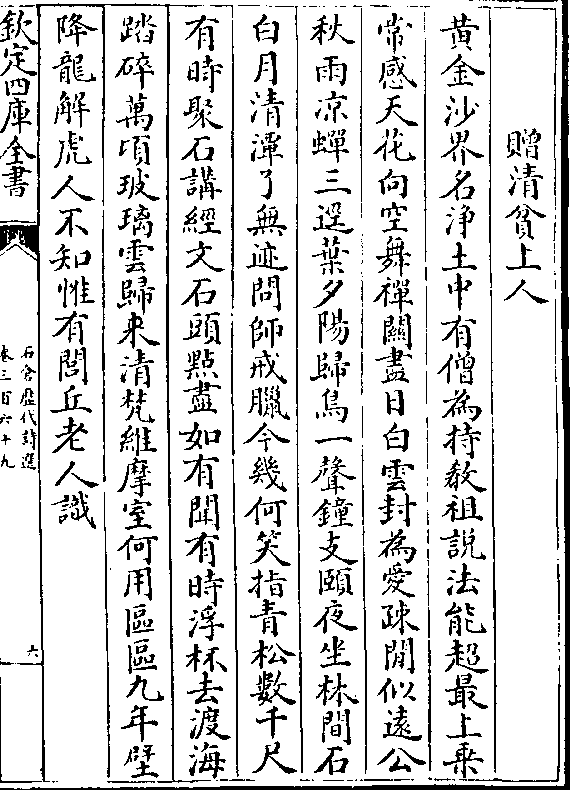 贈清貧上人
黃金沙界名浄土中有僧為持敎祖說法能超最上乗
常感天花向空舞禪關盡日白雲封為愛疎閒似遠公
秋雨凉蟬三逕葉夕陽歸鳥一聲鐘支頤夜坐林間石
白月清潭了無迹問師戒臘今幾何笑指青松數千尺
有時聚石講經文石頭㸃盡如有聞有時浮杯去渡海
踏碎萬頃玻璃雲歸来清梵維摩室何用區區九年壁
降龍解虎人不知惟有閭丘老人識
欽定四庫全書
石倉歴代詩選
卷三百六十九
六